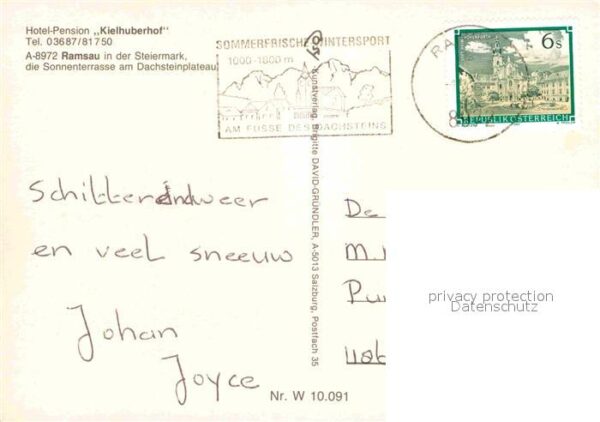 Hotel-Pension „Kielhuberhof"
Tel. 03687/81750
A-8972 Ramsau in der Steiermark,
die Sonnenterrasse am Dachsteinplateau
SOMMERFRISCHE WINTERSPORT
1000-1800 m
AM FUSSE DES DACHSTEINS
RA
6s
REPUBLIK ÖSTERREICH
Kunstverlag Brigitte DAVID-GRÜNDLER, A-5013 Salzburg, Postfach 35
Schitterendweer
en veel sneeuw
Johan
Joyce
De
M.
Pu
privacy protection
Datenschutz
Nr. W 10.091